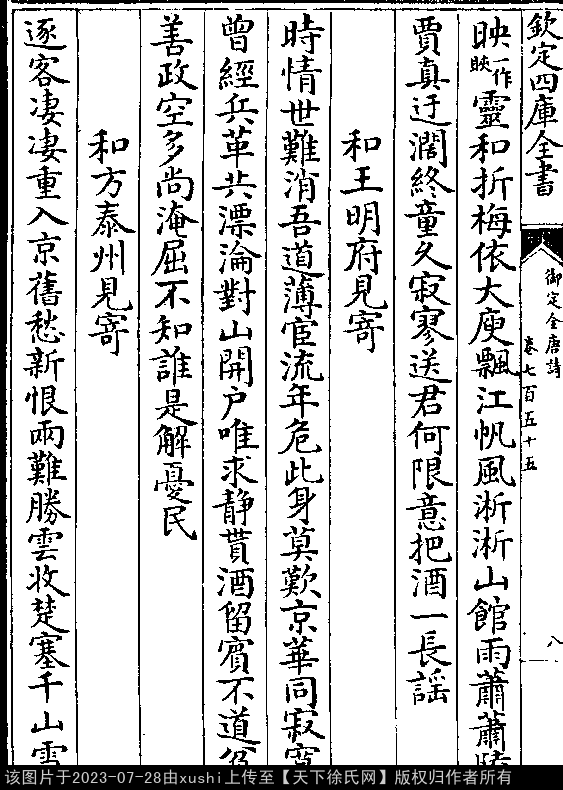 欽定四庫全書
御定全唐詩
卷七百五十五
八
映一作映靈和折梅依大庾飄江帆風淅淅山館雨蕭蕭陸
賈真迂濶終童久寂寥送君何限意把酒一長謡
和王明府見寄
時情世難消吾道薄宦流年危此身莫歎京華同寂寞
曾經兵革共漂淪對山開户唯求靜貰酒留賓不道
善政空多尚淹屈不知誰是解憂民
和方泰州見寄
逐客淒淒重入京舊愁新恨兩難勝雲收楚塞千山雪
该图片于2023-07-28由xushi上传至【天下徐氏网】版权归作者所有